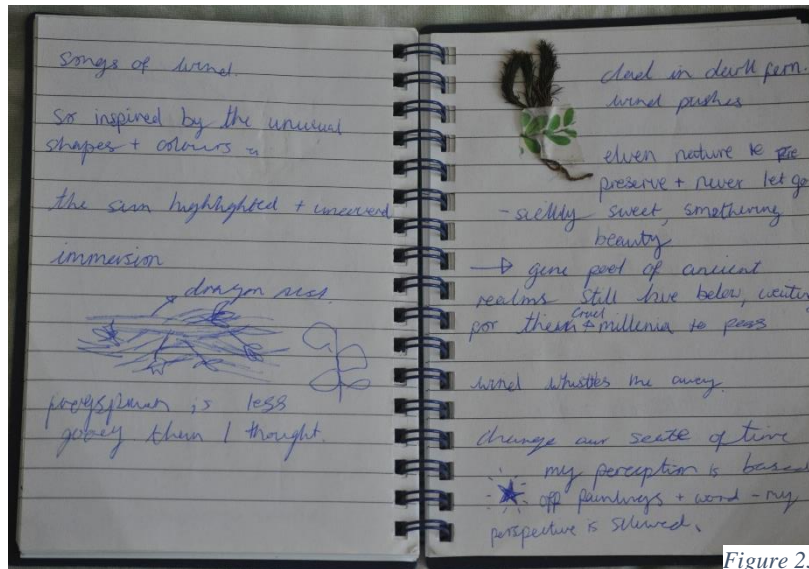 songs of wind.
so inspired by the unusual
shapes + colours
the sun highlighted + uncovered
immersion
dragon
is less
than I thought.
clad in dark fern.
wind pushes
elven nature to pre
preserve + never let go
- sickly sweet, smothering
beauty
gene pool of ancient
realms still live below, waiting
cruel
for their millenia to pass
wind whistles me away.
change our scale of time
my perception is based
off paintings + word - my
perspective is skewed.
Figure 2